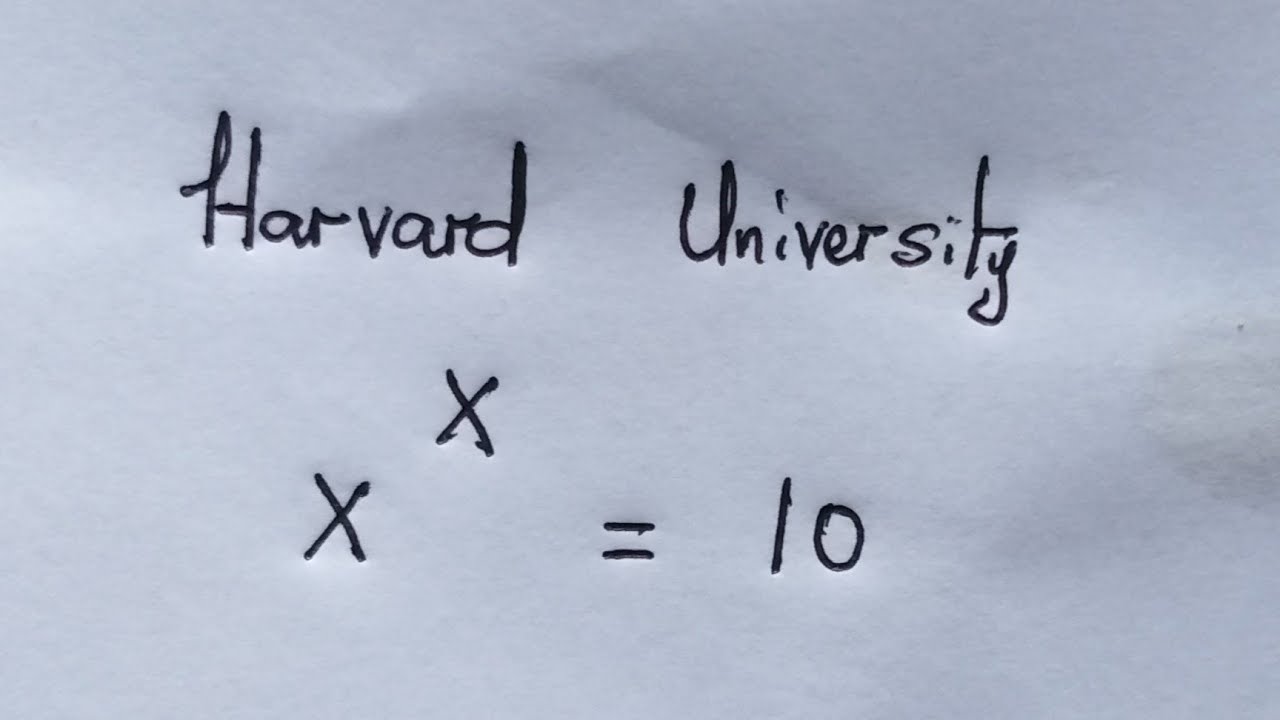 Harvard University
X^X = 10